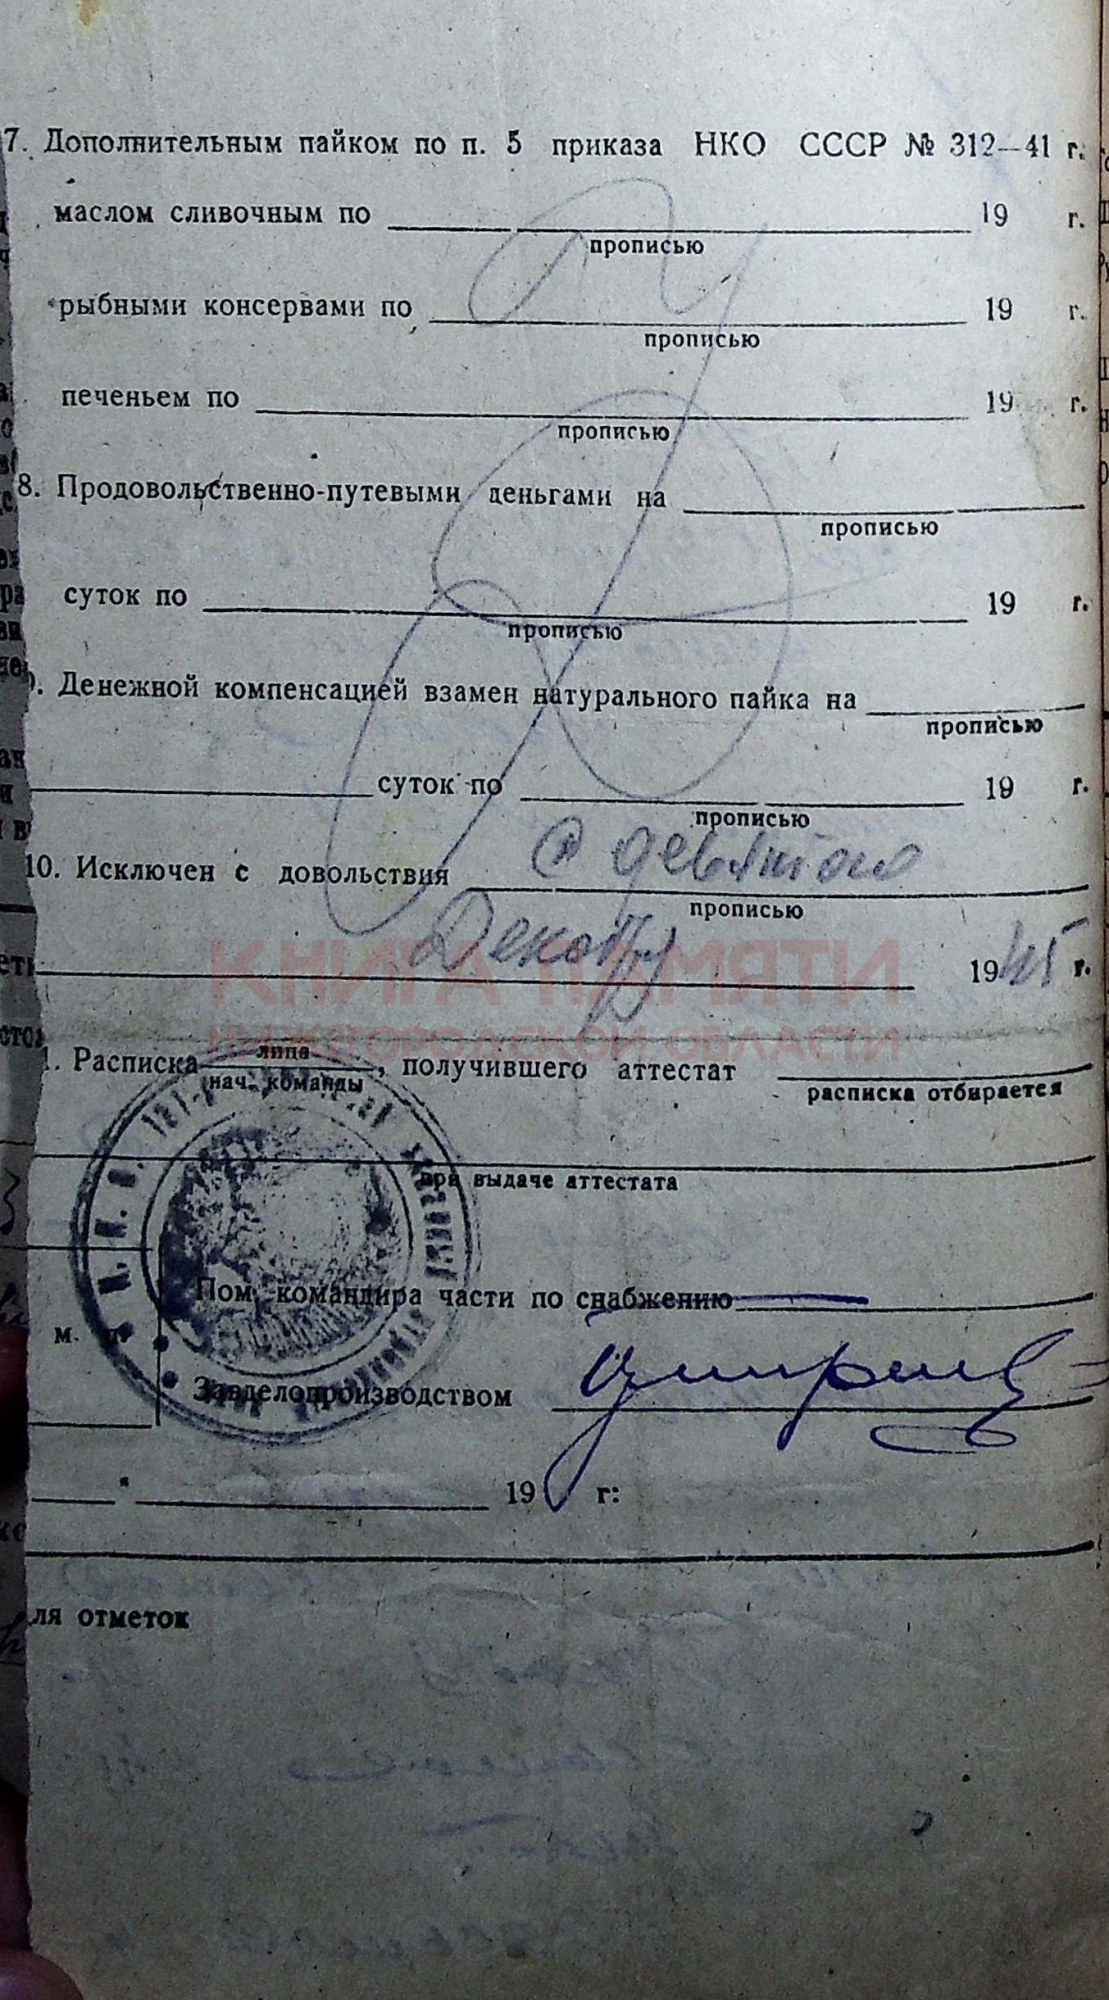 7. Дополнительным пайком по п. 5 приказа НКО СССР № 312—41 г.
маслом сливочным по 19 г.
прописью
рыбными консервами по 19 г.
прописью
печеньем по 19 г.
прописью
8. Продовольственно-путевыми деньгами на
прописью
суток по 19 г.
прописью
Денежной компенсацией взамен натурального пайка на
прописью
суток по 19 г.
прописью
10. Исключен с довольствия с девятого
прописью
Декабря 1945 г.
КНИГА ПАМЯТИ
НИЖЕГОРОДСКОЙ ОБЛАСТИ
1. Расписка лица, получившего аттестат
нач. команды расписка отбирается
при выдаче аттестата
Пом. командира части по снабжению
м. п.
Завделопроизводством
19 г.
ля отметок